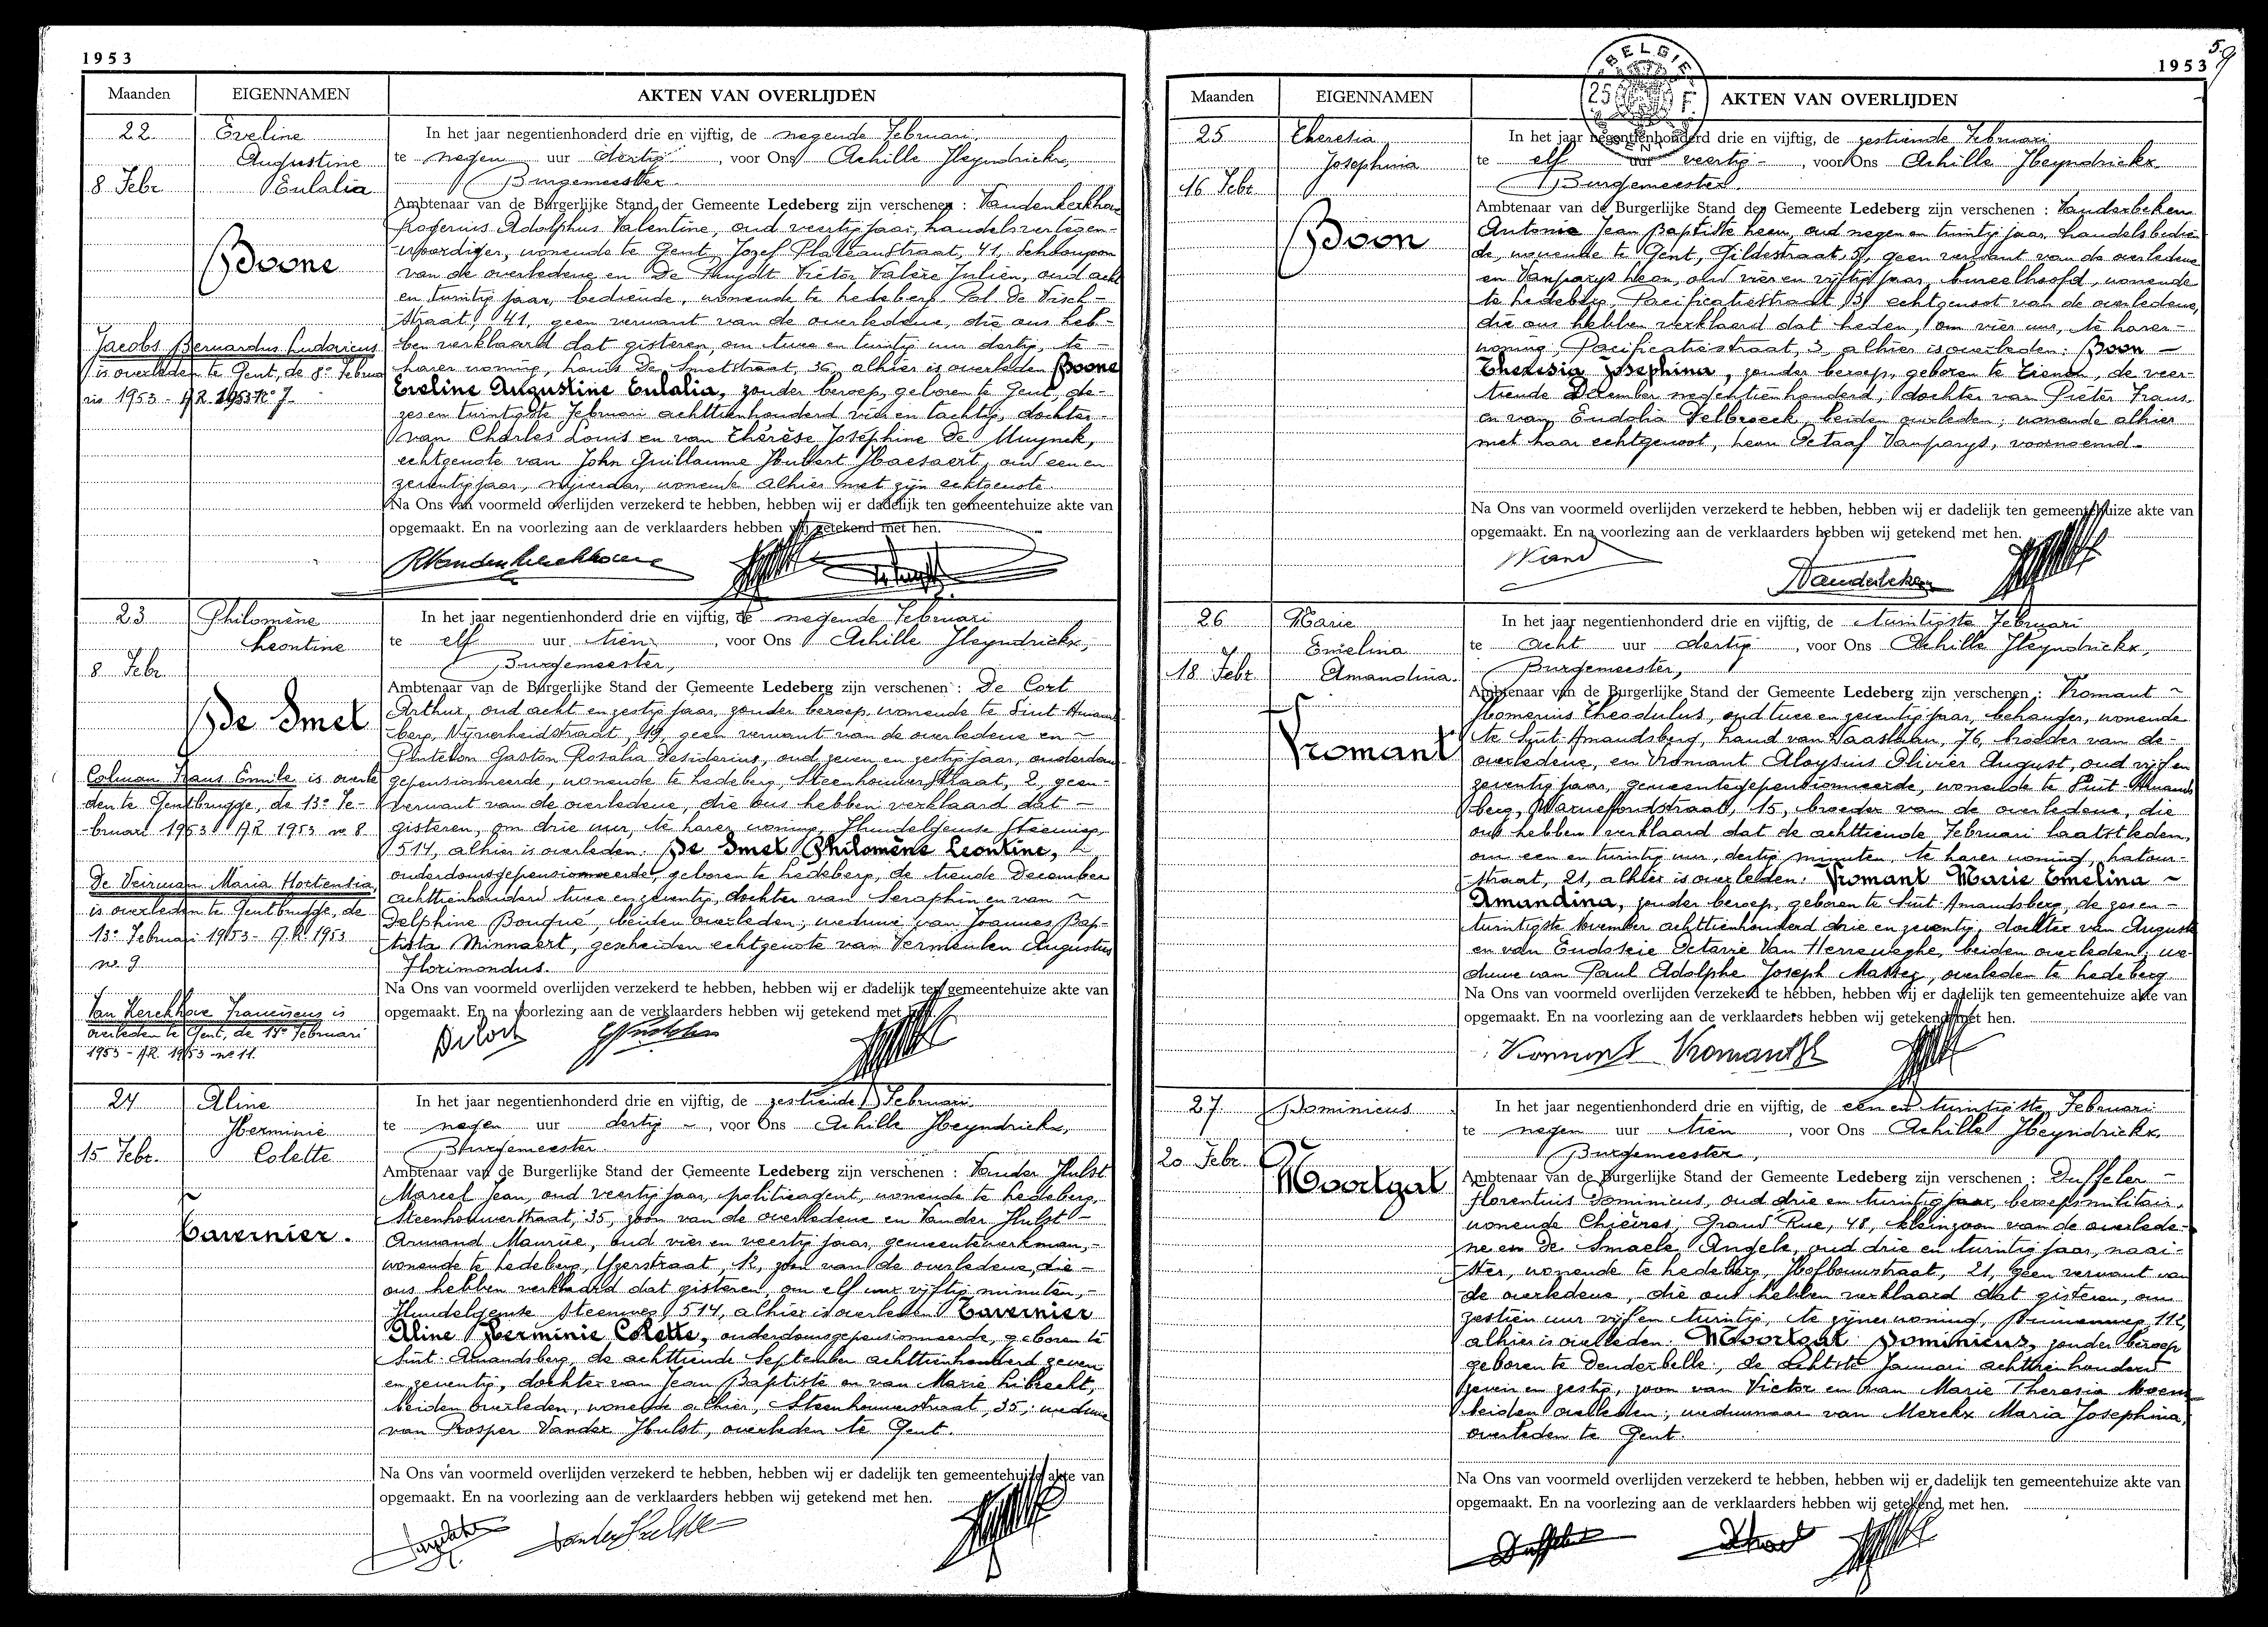 1953
Maanden EIGENNAMEN AKTEN VAN OVERLIJDEN
22. Eveline
Augustine
8 Febr Eulalia
Boone
Jacobs Bernardus Ludovicus
is overleden te Gent, de 8e Februa
rie 1953 - AR 1953 Nr 7.
In het jaar negentienhonderd drie en vijftig, de negende Februari
te negen uur dertig, voor Ons Achille Heyndrickx,
Burgemeester.
Ambtenaar van de Burgerlijke Stand der Gemeente Ledeberg zijn verschenen : Vandenkerkhove
Rogerius Adolphus Valentine, oud veertig jaar, handelsvertegen-
woordiger, wonende te Gent, Jozef Plateaustraat, 41, Schoonzoon
van de overledene en De Huydt Victor Valère Julien, oud acht
en twintig jaar, bediende, wonende te Ledeberg, Pol De Visch-
straat, 41, geen verwant van de overledene, die ons heb-
ben verklaard dat gisteren, om twee en twintig uur dertig, te
harer woning, Louis De Smetstraat, 36, alhier is overleden Boone
Eveline Augustine Eulalia, zonder beroep, geboren te Gent, de
zes en twintigste Februari achttienhonderd vier en tachtig, dochter
van Charles Louis en van Thérèse Joséphine De Muynck,
echtgenote van John Guillaume Hubert Haesaert, oud een en
zeventig jaar, nijveraar, wonende alhier met zijn echtgenote.
Na Ons van voormeld overlijden verzekerd te hebben, hebben wij er dadelijk ten gemeentehuize akte van
opgemaakt. En na voorlezing aan de verklaarders hebben wij getekend met hen.
RVandenkerckhove
23 Philomène
Leontine
8 Febr
De Smet
Colman Frans Emile is overle
den te Gentbrugge, de 13e Fe-
bruari 1953 AR 1953 nr 8
De Veirman Maria Hortensia,
is overleden te Gentbrugge, de
13e Februari 1953 - A.R. 1953
nr. 9
Van Kerckhove Franciscus is
overleden te Gent, de 14e Februari
1953 - AR 1953 - nr 11.
In het jaar negentienhonderd drie en vijftig, de negende Februari
te elf uur tien, voor Ons Achille Heyndrickx,
Burgemeester,
Ambtenaar van de Burgerlijke Stand der Gemeente Ledeberg zijn verschenen : De Cort
Arthur, oud acht en zestig jaar, zonder beroep, wonende te Sint-Amands-
berg, Nijverheidstraat, 49, geen verwant van de overledene en ~
Pintelon Gaston Rosalia Desiderius, oud zeven en zestig jaar, ouderdoms-
gepensionneerde, wonende te Ledeberg, Steenhouwerstraat, 2, geen-
verwant van de overledene, die ons hebben verklaard dat -
gisteren, om drie uur, te harer woning, Hundelgemse Steenweg,
514, alhier is overleden. De Smet Philomène Leontine,
ouderdomsgepensionneerde, geboren te Ledeberg, de tiende December
achttienhonderd twee en zeventig, dochter van Seraphin en van ~
Delphine Bouqué, beiden overleden; weduwe van Joannes Bap-
tista Minnaert, gescheiden echtgenote van Vermeulen Augustus
Florimondus.
Na Ons van voormeld overlijden verzekerd te hebben, hebben wij er dadelijk ten gemeentehuize akte van
opgemaakt. En na voorlezing aan de verklaarders hebben wij getekend met hen.
24 Aline
Herminie
15 Febr. Colette
Tavernier.
In het jaar negentienhonderd drie en vijftig, de zestiende Februari
te negen uur dertig, voor Ons Achille Heyndrickx,
Burgemeester.
Ambtenaar van de Burgerlijke Stand der Gemeente Ledeberg zijn verschenen : Vander Hulst
Marcel Jean, oud veertig jaar, politieagent, wonende te Ledeberg,
Steenhouwerstraat, 35, zoon van de overledene en Vander Hulst -
Armand Maurice, oud vier en veertig jaar, gemeentewerkman,-
wonende te Ledeberg, Yzerstraat, 12, zoon van de overledene, die -
ons hebben verklaard dat gisteren, om elf uur vijftig minuten,-
Hundelgemse Steenweg 514, alhier is overleden Tavernier
Aline Herminie Colette, ouderdomsgepensionneerde, geboren te
Sint-Amandsberg, de achttiende September achttienhonderd zeven
en zeventig, dochter van Jean Baptiste en van Marie Librecht,
beiden overleden, wonende alhier, Steenhouwerstraat, 35; weduwe
van Prosper Vander Hulst, overleden te Gent.
Na Ons van voormeld overlijden verzekerd te hebben, hebben wij er dadelijk ten gemeentehuize akte van
opgemaakt. En na voorlezing aan de verklaarders hebben wij getekend met hen.
VanderHulst
1953
BELGIE
25 F
Maanden EIGENNAMEN AKTEN VAN OVERLIJDEN
25 Theresia
Josephina
16 Febr
Boon
In het jaar negentienhonderd drie en vijftig, de zestiende Februari
te elf uur veertig, voor Ons Achille Heyndrickx
Burgemeester.
Ambtenaar van de Burgerlijke Stand der Gemeente Ledeberg zijn verschenen : Vanderbeken
Antonia Jean Baptiste Leon, oud negen en twintig jaar, handelsbedien
de, wonende te Gent, Gildestraat, 5, geen verwant van de overledene
en Vanparys Leon, oud vier en vijftig jaar, bureelhoofd, wonende
te Ledeberg, Pacificatiestraat, 3, echtgenoot van de overledene,
die ons hebben verklaard dat heden, om vier uur, te harer-
woning, Pacificatiestraat, 3, alhier is overleden: Boon -
Theresia Josephina, zonder beroep, geboren te Tienen, de veer-
tiende December negentienhonderd, dochter van Pieter Frans,
en van Eudolia Velbroeck, beiden overleden; wonende alhier
met haar echtgenoot, Leon Octaaf Vanparys, voornoemd.
Na Ons van voormeld overlijden verzekerd te hebben, hebben wij er dadelijk ten gemeentehuize akte van
opgemaakt. En na voorlezing aan de verklaarders hebben wij getekend met hen.
Vanderbeken
26 Marie
Emelina
18 Febr Amandina.
Vromant
In het jaar negentienhonderd drie en vijftig, de twintigste Februari
te acht uur dertig, voor Ons Achille Heyndrickx,
Burgemeester,
Ambtenaar van de Burgerlijke Stand der Gemeente Ledeberg zijn verschenen : Vromant ~
Homerius Theodulus, oud twee en zeventig jaar, behanger, wonende
te Sint-Amandsberg, Land van Waaslaan, 76, broeder van de-
overledene, en Vromant Aloysius Olivier August, oud vijf en
zeventig jaar, gemeentegepensionneerde, wonende te Sint-Amands
berg, Wasstraat, 15, broeder van de overledene, die
ons hebben verklaard dat de achttiende Februari laatstleden,
om een en twintig uur, dertig minuten, te harer woning, Latour-
straat, 21, alhier is overleden: Vromant Marie Emelina ~
Amandina, zonder beroep, geboren te Sint-Amandsberg, de zes en -
twintigste November achttienhonderd drie en zeventig, dochter van August
en van Eudoxie Octavie Van Herreweghe, beiden overleden; we-
duwe van Paul Adolphe Joseph Mattez, overleden te Ledeberg
Na Ons van voormeld overlijden verzekerd te hebben, hebben wij er dadelijk ten gemeentehuize akte van
opgemaakt. En na voorlezing aan de verklaarders hebben wij getekend met hen.
Vromant Vromant
27. Dominicus
20 Febr.
Moortgat
In het jaar negentienhonderd drie en vijftig, de een en twintigste Februari
te negen uur tien, voor Ons Achille Heyndrickx,
Burgemeester,
Ambtenaar van de Burgerlijke Stand der Gemeente Ledeberg zijn verschenen : Duffeler -
Florentius Dominicus, oud drie en twintig jaar, beroepsmilitair,
wonende Chièvres, Grand' Rue, 48, kleinzoon van de overlede-
ne en De Smaele Angele, oud drie en twintig jaar, naai-
ster, wonende te Ledeberg, Hofbouwstraat, 21, geen verwant van
de overledene, die ons hebben verklaard dat gisteren, om
zestien uur vijf en twintig, te zijner woning, Brusselweg, 112,
alhier is overleden. Moortgat Dominicus, zonder beroep
geboren te Denderbelle, de achtste Januari achttienhonderd
zeven en zestig, zoon van Victor en van Marie Theresia Moens
beiden overleden; weduwnaar van Merckx Maria Josephina,
overleden te Gent.
Na Ons van voormeld overlijden verzekerd te hebben, hebben wij er dadelijk ten gemeentehuize akte van
opgemaakt. En na voorlezing aan de verklaarders hebben wij getekend met hen.